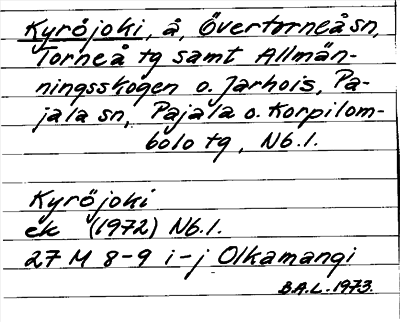 Kyröjoki, å, Övertorneå sn,
Torneå tg samt Allmän-
ningsskogen o. Jarhois, Pa-
jala sn, Pajala o. Korpilom-
bolo tg, Nb.l.
Kyröjoki
ek (1972) Nb.l.
27 M 8-9 i-j Olkamangi
B.A.L. 1973.